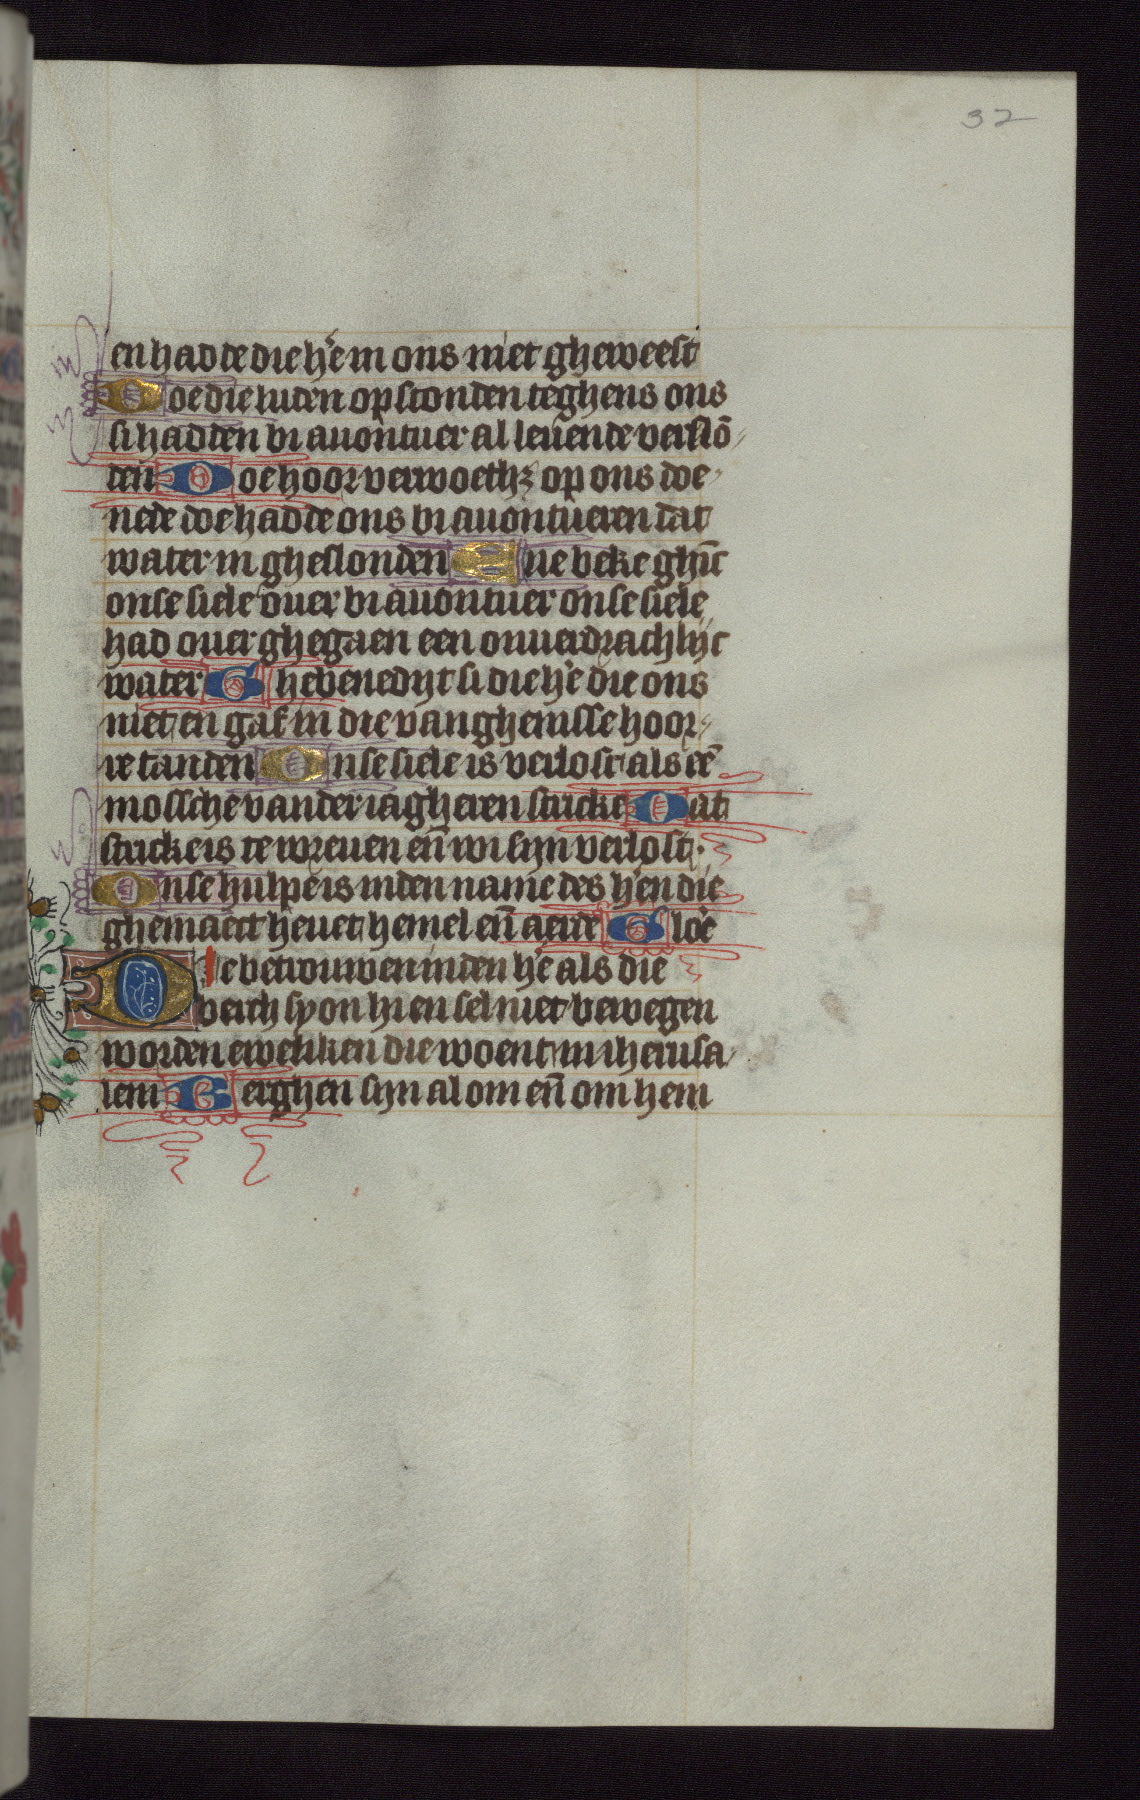 32
en hadde die he͛ in ons niet gheweest
Doe die luden op stonden teghens ons
si hadden bi auontuer al leuende verslō
den Doe hoor verwoethꝫ op ons doe
nede doe hadde ons bi auontueren dat
water in gheslonden Die beke ghīc
onse siele ouer bi auontuer onse siele
had ouer ghegaen een onuerdrachlijc
water Ghebenedijt si die he͛ die ons
niet en gaf in die vanghenisse hoor
re tanden Onse siele is verlost als ee͛
mossche vander iagheren stricke Dat
stricke is te wreuen en̄ wi sijn verlost
Onse hulpe is inden name des he͛n die
ghemaect heuet hemel en̄ aerde Gloe͛
Die betrouwen inden he͛ als die
berch syon hi en sel niet bewegen
worden eweliken die woent in iherusa
lem Berghen sijn al om en̄ om hem